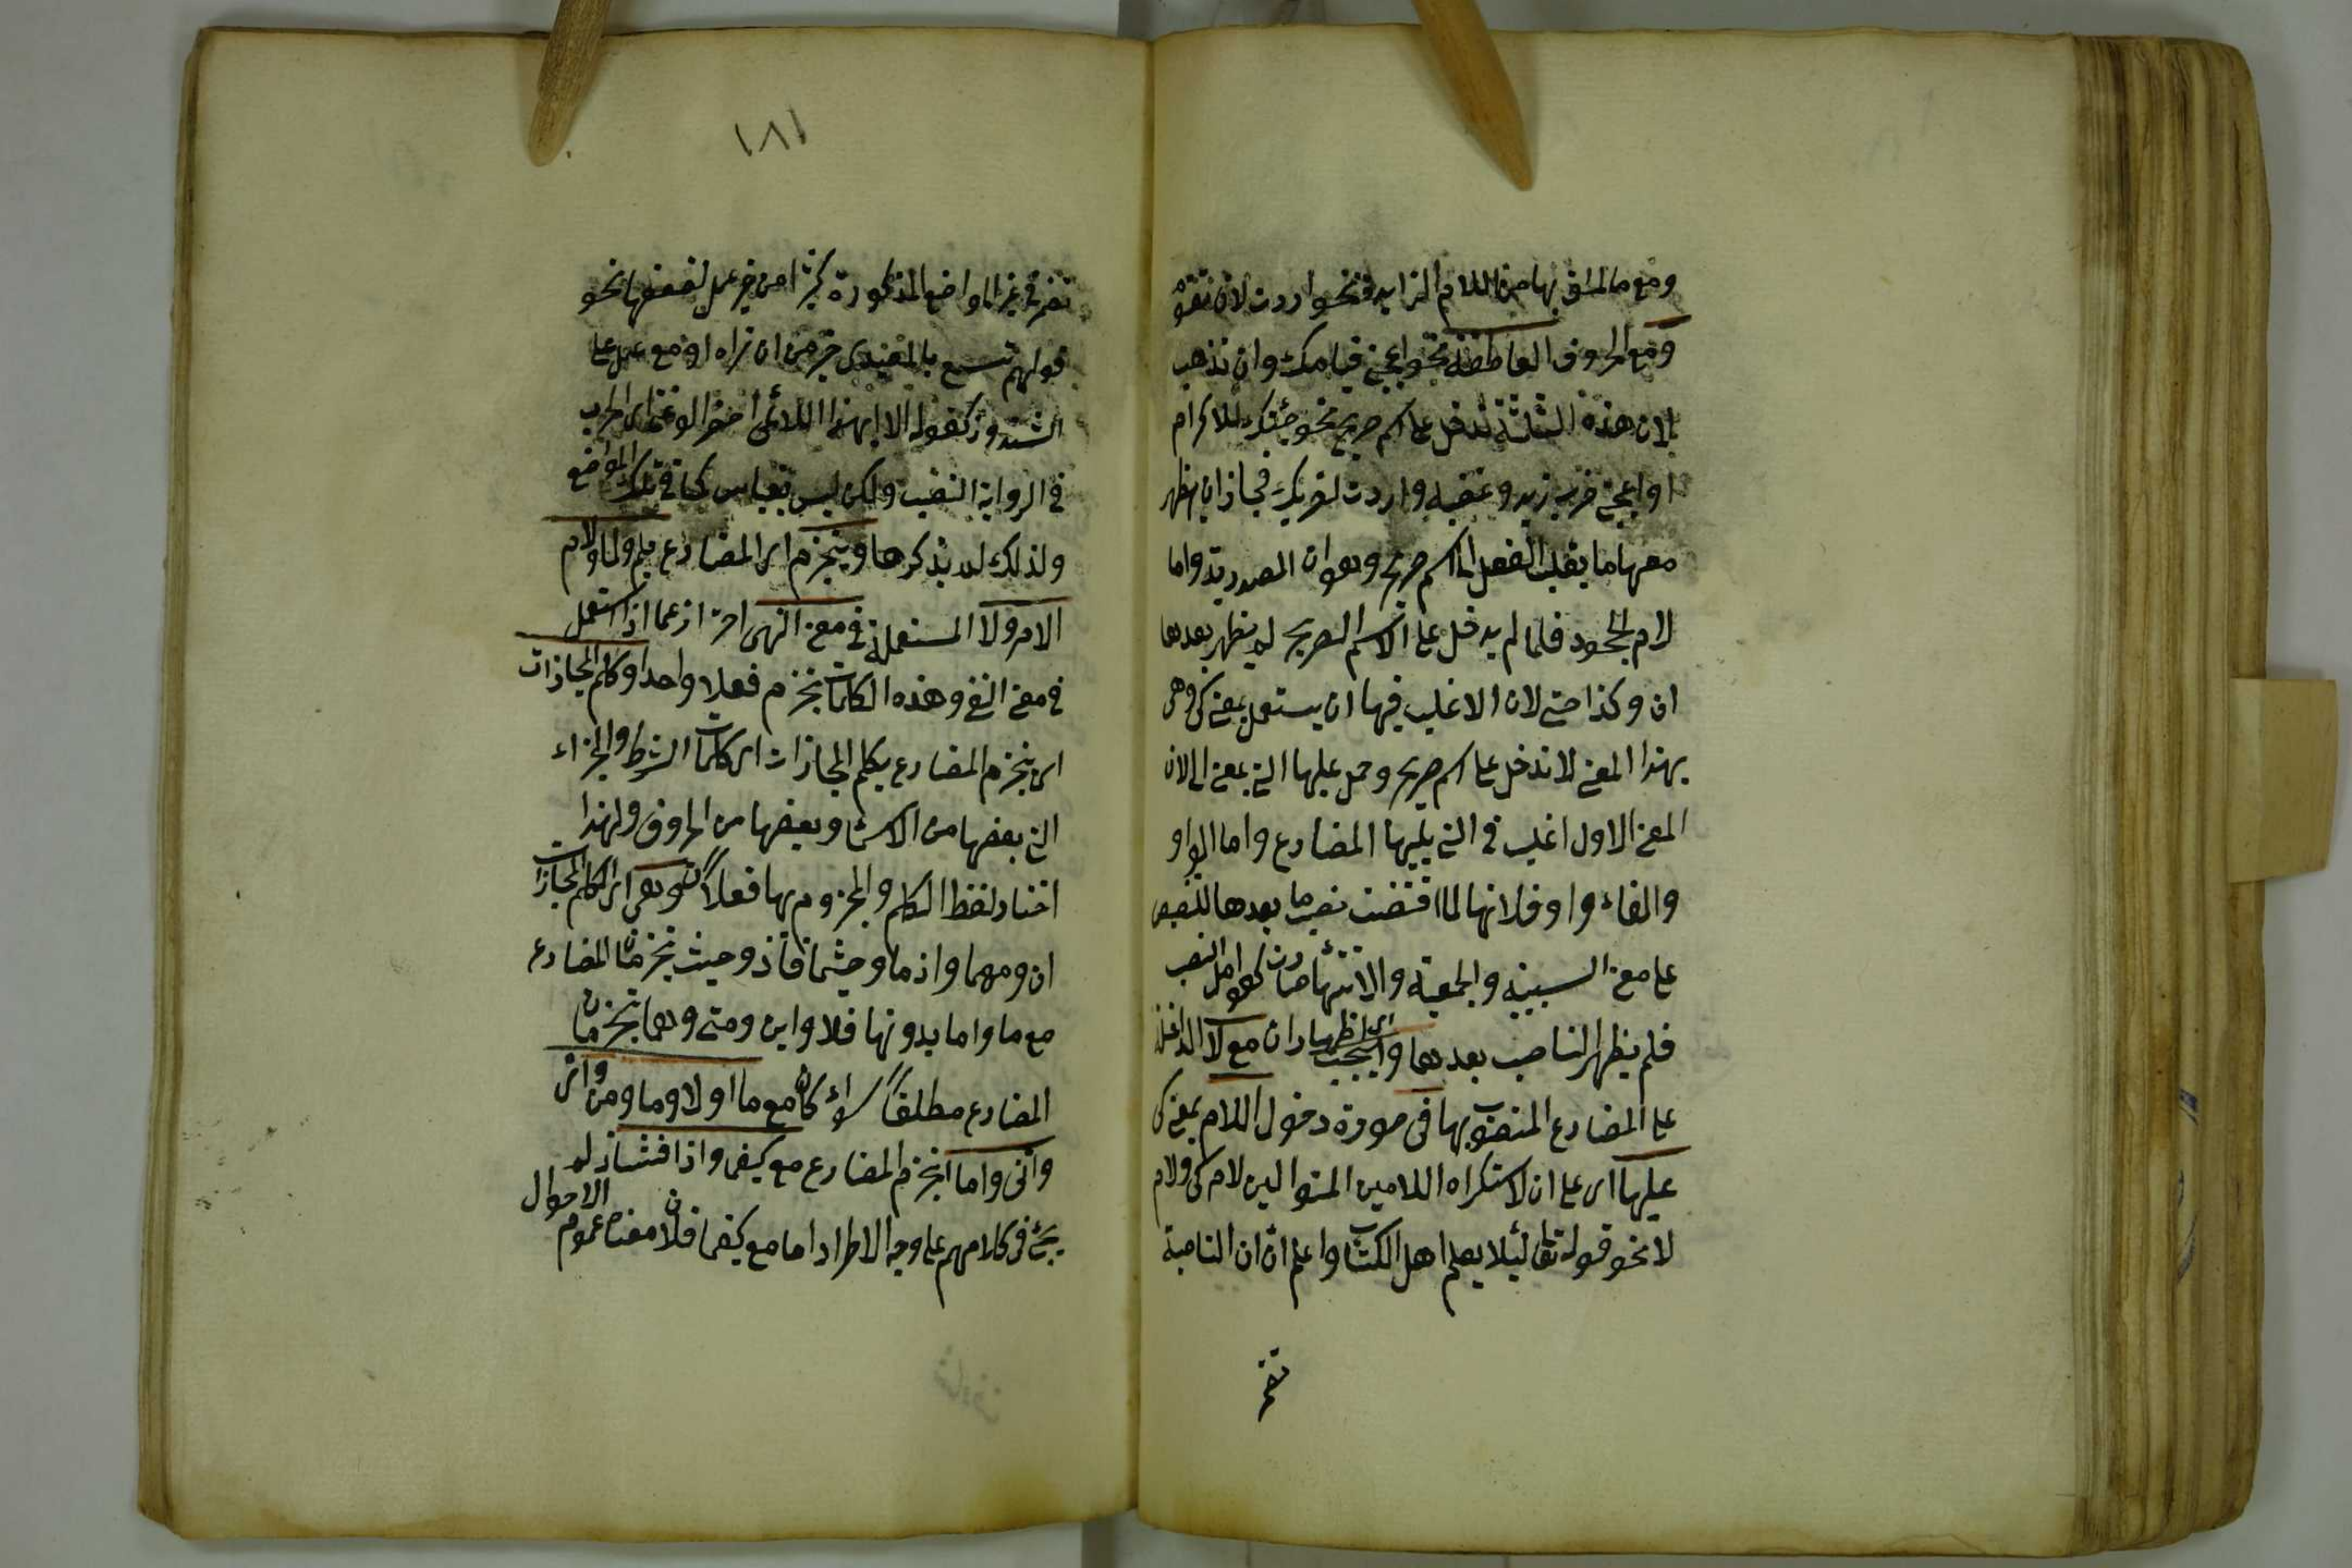 ومع ما لحق بها من اللام الزايدة نحو اردت لان تقوم
ومع الحروف العاطفة نحو اعجبني قيامك وان تذهب
لان هذه الثلثة تدخل على اسم صريح نحو جئتك للاكرام
او اعجبني ضرب زيد وغضبه واردت لضربك فجاز ان يظهر
معها ما يقلب الفعل الى اسم صريح وهو ان المصدرية واما
لام الجحود فلما لم يدخل على الاسم الصريح لم يظهر بعدها
ان وكذا حتى لان الاغلب فيها ان يستعمل بمعنى كي وهى
بهذا المعنى لا تدخل على اسم صريح وحمل عليها التي بمعنى الى لان
المعنى الاول اغلب في التي يليها المضارع واما الواو
والفاء واو فلانها لما اقتضت نصب ما بعدها للتنصيص
على معنى السببية والجمعية والانتهاء صارت كعوامل النصب
فلم يظهر الناصب بعدها ويجب اى اظهار ان مع لا الداخلة
على المضارع المنصوب بها في صورة دخول اللام بمعنى كي
عليها اى على ان لاستكراه اللامين المتواليين لام كي ولام
لا نحو قوله تعالى لئلا يعلم اهل الكتاب واعلم ان ان الناصبة
تضمر
١٨١
تضمر في غير المواضع المذكورة كثيرا من غير عمل لضعفها نحو
قولهم تسمع بالمعيدي خير من ان تراه او مع عمل على
الشذوذ كقوله الا ايهذا اللائمي احضر الوغى اى الحرب
في الرواية النصب ولكن ليس بقياس كما في تلك المواضع
ولذلك لم يذكرها وينجزم اى المضارع بلم ولما ولام
الامر ولا المستعملة في معنى النهى احترازعما اذا استعمل
في معنى النفي وهذه الكلمات تجزم فعلا واحدا وكلم المجازات
اى ينجزم المضارع بكلم المجازات اى كلمات الشرط والجزاء
التي بعضها من الاسماء وبعضها من الحروف ولهذا
اختار لفظ الكلم والمجزوم بها فعلان وهى اى الكلم المجازات
ان ومهما واذما وحيثما فاذ وحيث تجزمان المضارع
مع ما واما بدونها فلا واين ومتى وهما تجزمان
المضارع مطلقا سواء كان مع ما او لا وما ومن واى
وانى واما انجزم المضارع مع كيفما واذا فشاذ لم
يجئ في كلامهم على وجه الاطراد اما مع كيفما فلان معناه عموم الاحوال